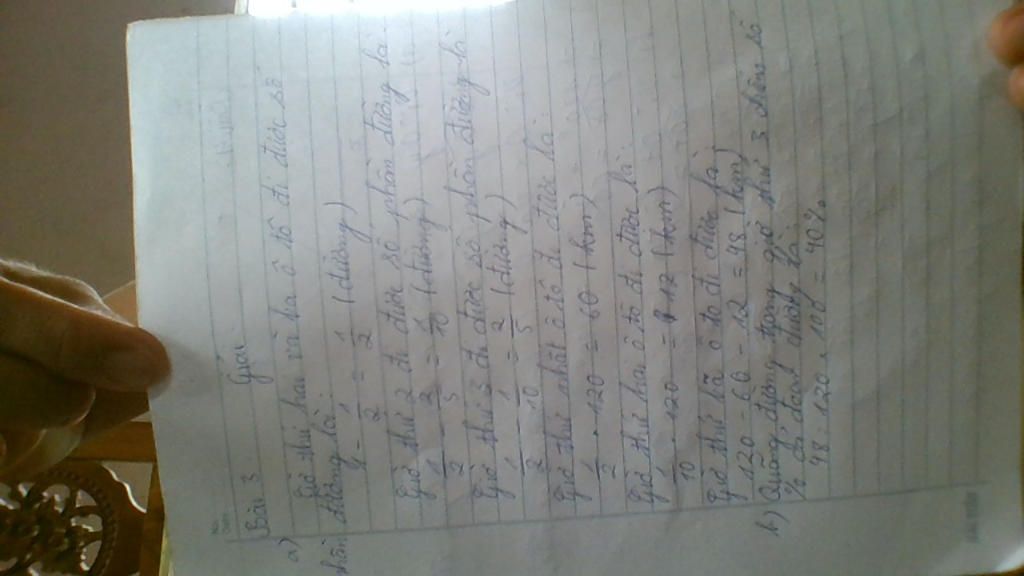 Bài 3 Giải
a) Giờ thứ hai và ba ô tô đi được số
phần đường là:
1 - 1/2 = 1/2 (đường)
Giờ thứ 2 đi được số phần đường là:
1/2 - 2/5 = 1/10 (đường)
Giờ thứ 3 đi được số phần đường là
1/2 - 1/10 = 2/5 (đường)
Giờ thứ nhất ô tô đi được là:
1/2 . 120 = 60 (km)
Giờ thứ hai ô tô đi được là:
1/10 . 120 = 12 (km)
Giờ thứ ba ô tô đi được là:
120 - 60 - 12 = 48 (km)
b) Quãng đường trong giờ thứ 3 chiếm số
% cả đoạn đường là:
48 : 120 . 100 = 40%